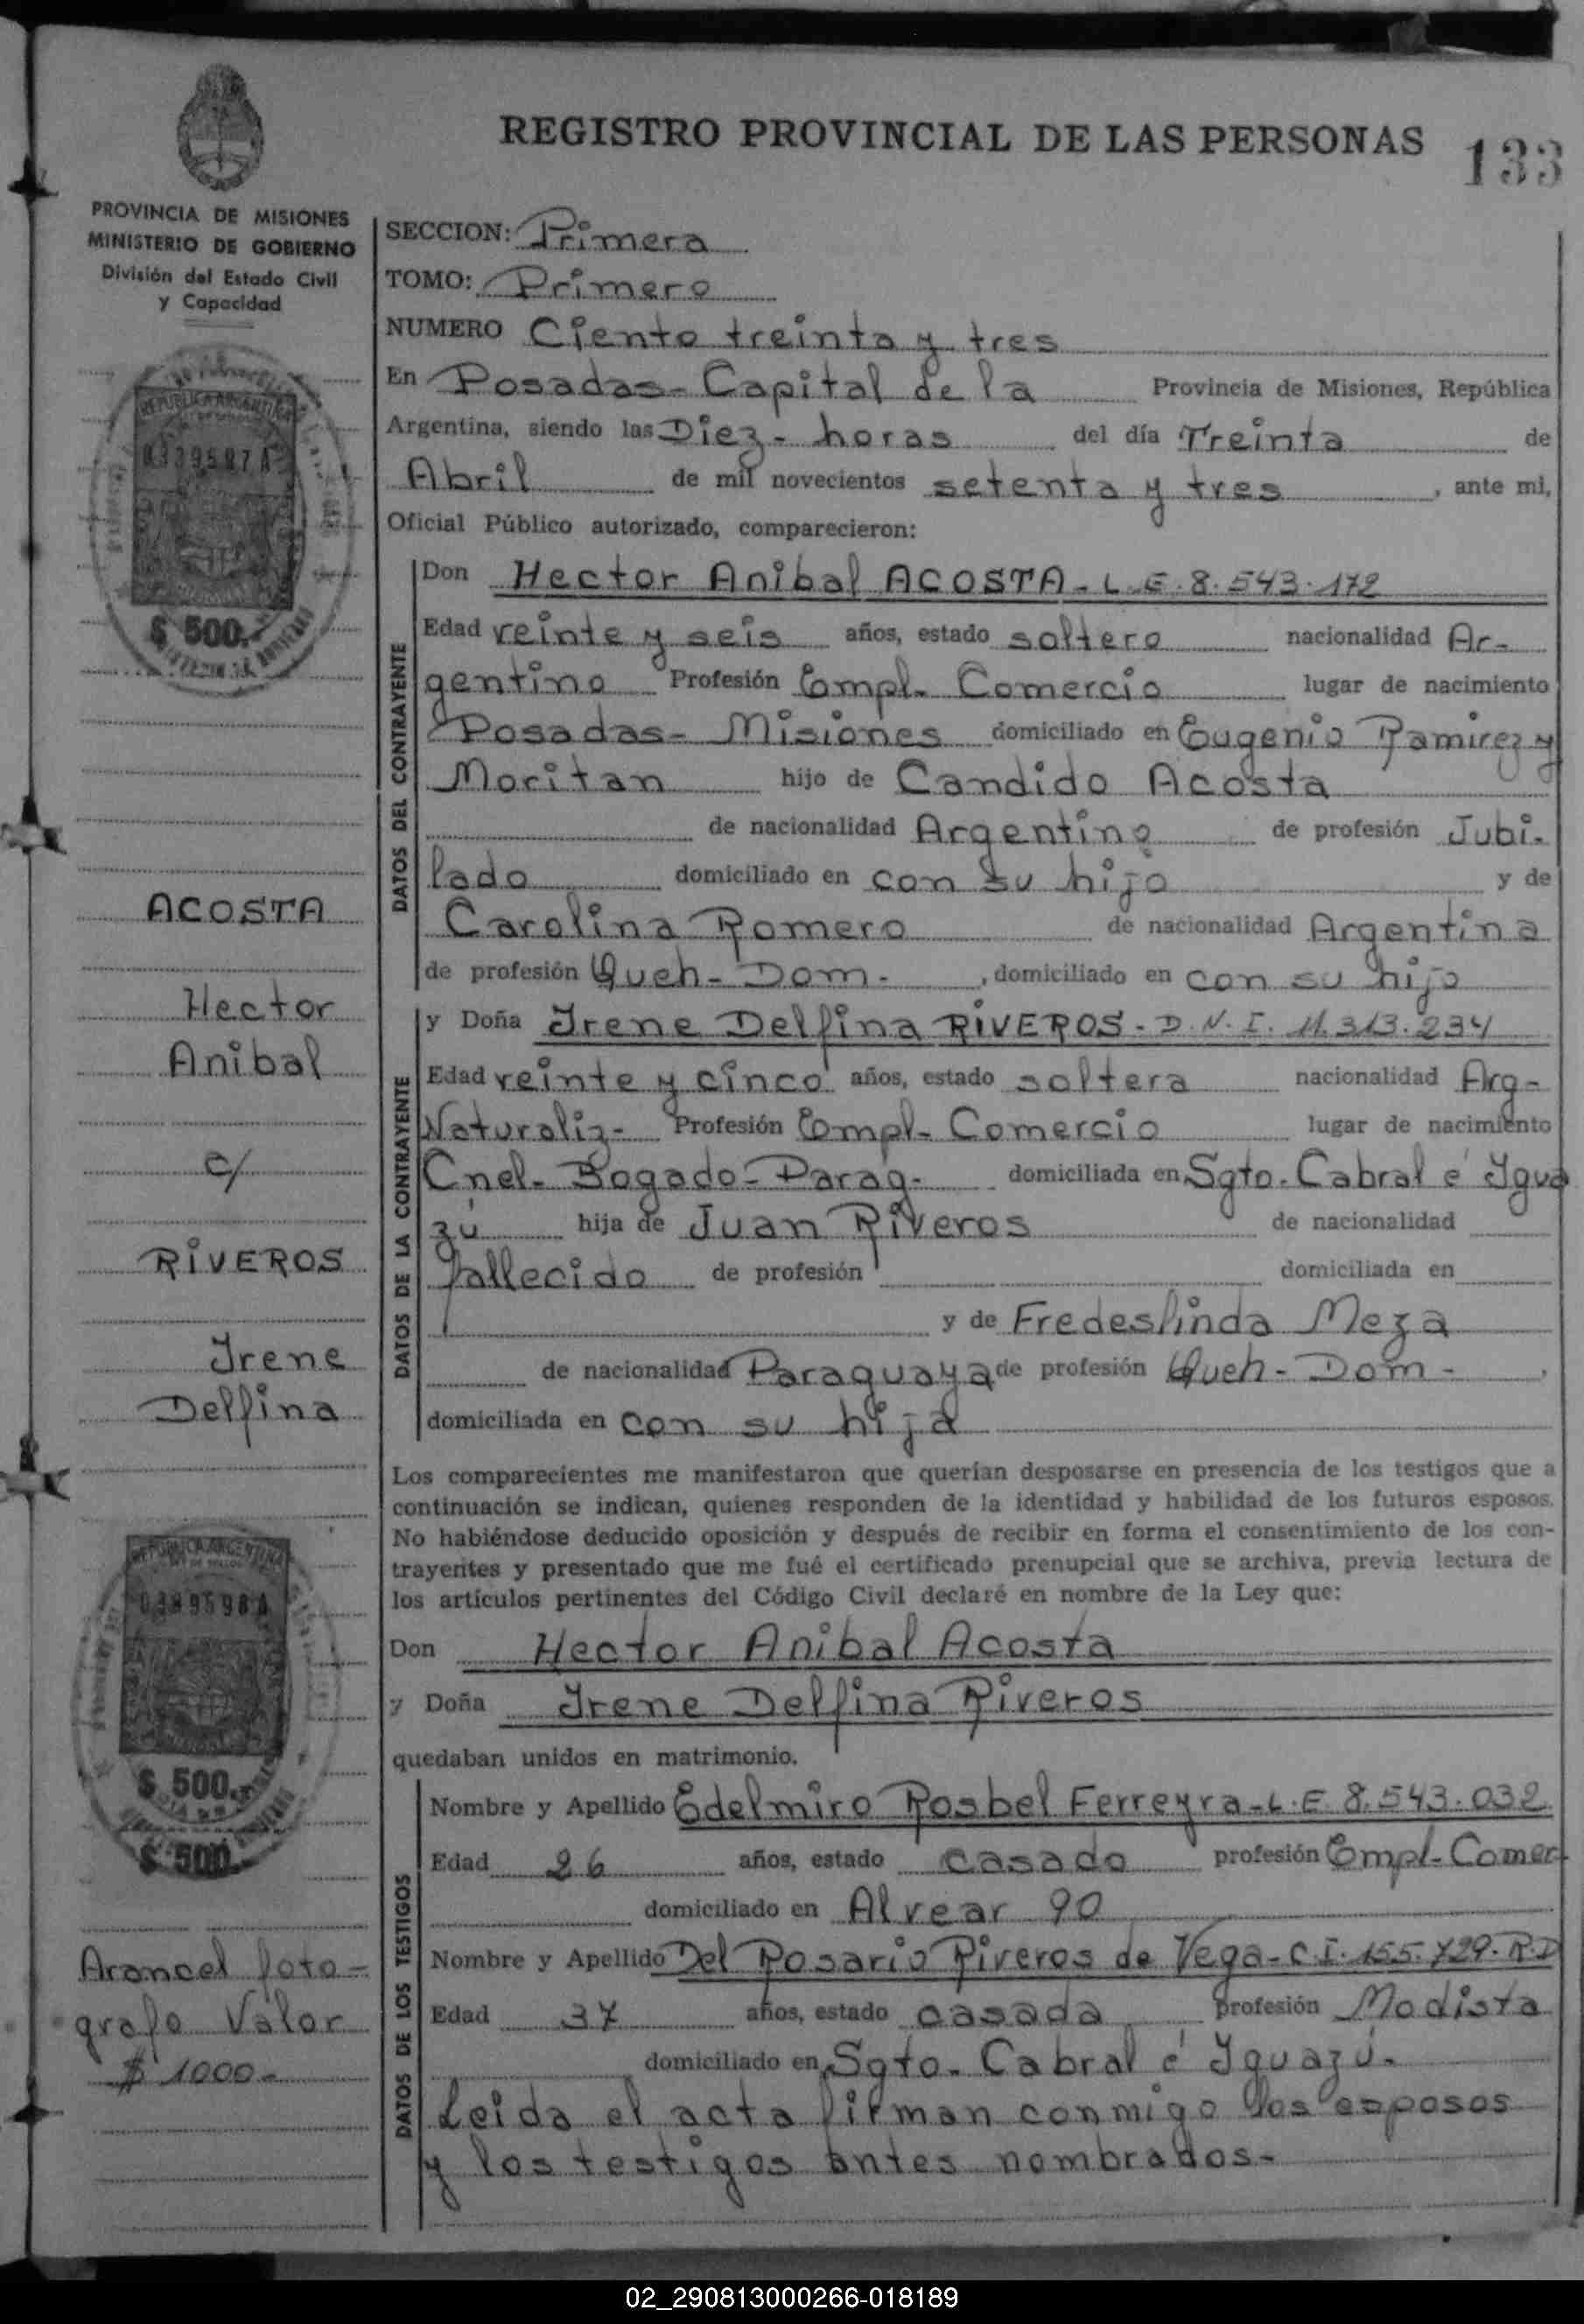 REGISTRO PROVINCIAL DE LAS PERSONAS
133
PROVINCIA DE MISIONES
MINISTERIO DE GOBIERNO
División del Estado Civil
y Capacidad
SECCION: Primera
TOMO: Primero
NUMERO Ciento treinta y tres
En Posadas- Capital de la Provincia de Misiones, República
Argentina, siendo las Diez- horas del día Treinta de
Abril de mil novecientos setenta y tres, ante mi,
Oficial Público autorizado, comparecieron:
DATOS DEL CONTRAYENTE
Don Hector Anibal ACOSTA- L.E. 8.543.172
Edad veinte y seis años, estado soltero nacionalidad Ar-
gentino Profesión Empl- Comercio lugar de nacimiento
Posadas- Misiones domiciliado en Eugenio Ramirez y
Moritan hijo de Candido Acosta
de nacionalidad Argentino de profesión Jubi-
lado domiciliado en con su hijo y de
Carolina Romero de nacionalidad Argentina
de profesión Queh- Dom- , domiciliado en con su hijo
DATOS DE LA CONTRAYENTE
y Doña Irene Delfina RIVEROS- D.N.I. 11.313.234
Edad veinte y cinco años, estado soltera nacionalidad Arg-
Naturaliz- Profesión Empl- Comercio lugar de nacimiento
Cnel- Bogado- Parag- domiciliada en Sgto- Cabral é Igua
zú hija de Juan Riveros de nacionalidad
fallecido de profesión domiciliada en
y de Fredeslinda Meza
de nacionalidad Paraguaya de profesión Queh- Dom- ,
domiciliada en con su hija
Los comparecientes me manifestaron que querían desposarse en presencia de los testigos que a
continuación se indican, quienes responden de la identidad y habilidad de los futuros esposos.
No habiéndose deducido oposición y después de recibir en forma el consentimiento de los con-
trayentes y presentado que me fué el certificado prenupcial que se archiva, previa lectura de
los artículos pertinentes del Código Civil declaré en nombre de la Ley que:
Don Hector Anibal Acosta
y Doña Irene Delfina Riveros
quedaban unidos en matrimonio.
DATOS DE LOS TESTIGOS
Nombre y Apellido Edelmiro Rosbel Ferreyra- L.E. 8.543.032
Edad 26 años, estado casado profesión Empl- Comer-
domiciliado en Alvear 90
Nombre y Apellido Del Rosario Riveros de Vega- C.I. 155.729- R.D
Edad 37 años, estado casada profesión Modista
domiciliado en Sgto- Cabral é Iguazú-
Leida el acta firman conmigo los esposos
y los testigos antes nombrados-
REPUBLICA ARGENTINA
$ 500.-
ACOSTA
Hector
Anibal
c/
RIVEROS
Irene
Delfina
REPUBLICA ARGENTINA
$ 500.-
$ 500.-
Arancel foto-
grafo Valor
$ 1000-
02_290813000266-018189